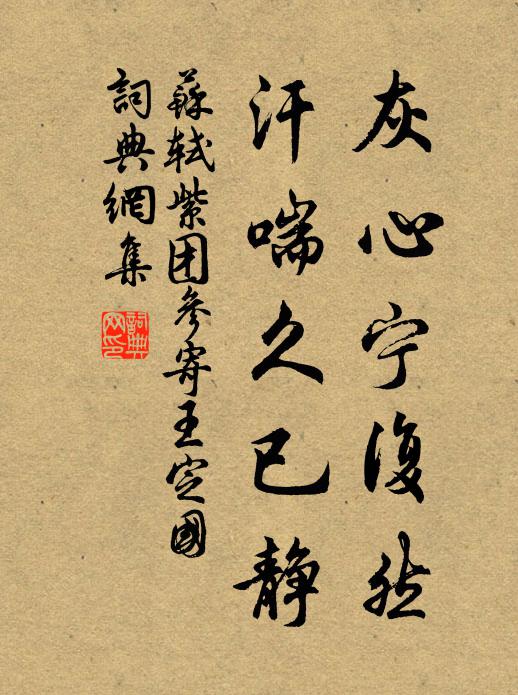 灰心宁復然
汗喘久已静
蘇軾紫团參寄王定國
詞典網集
詞典
网印